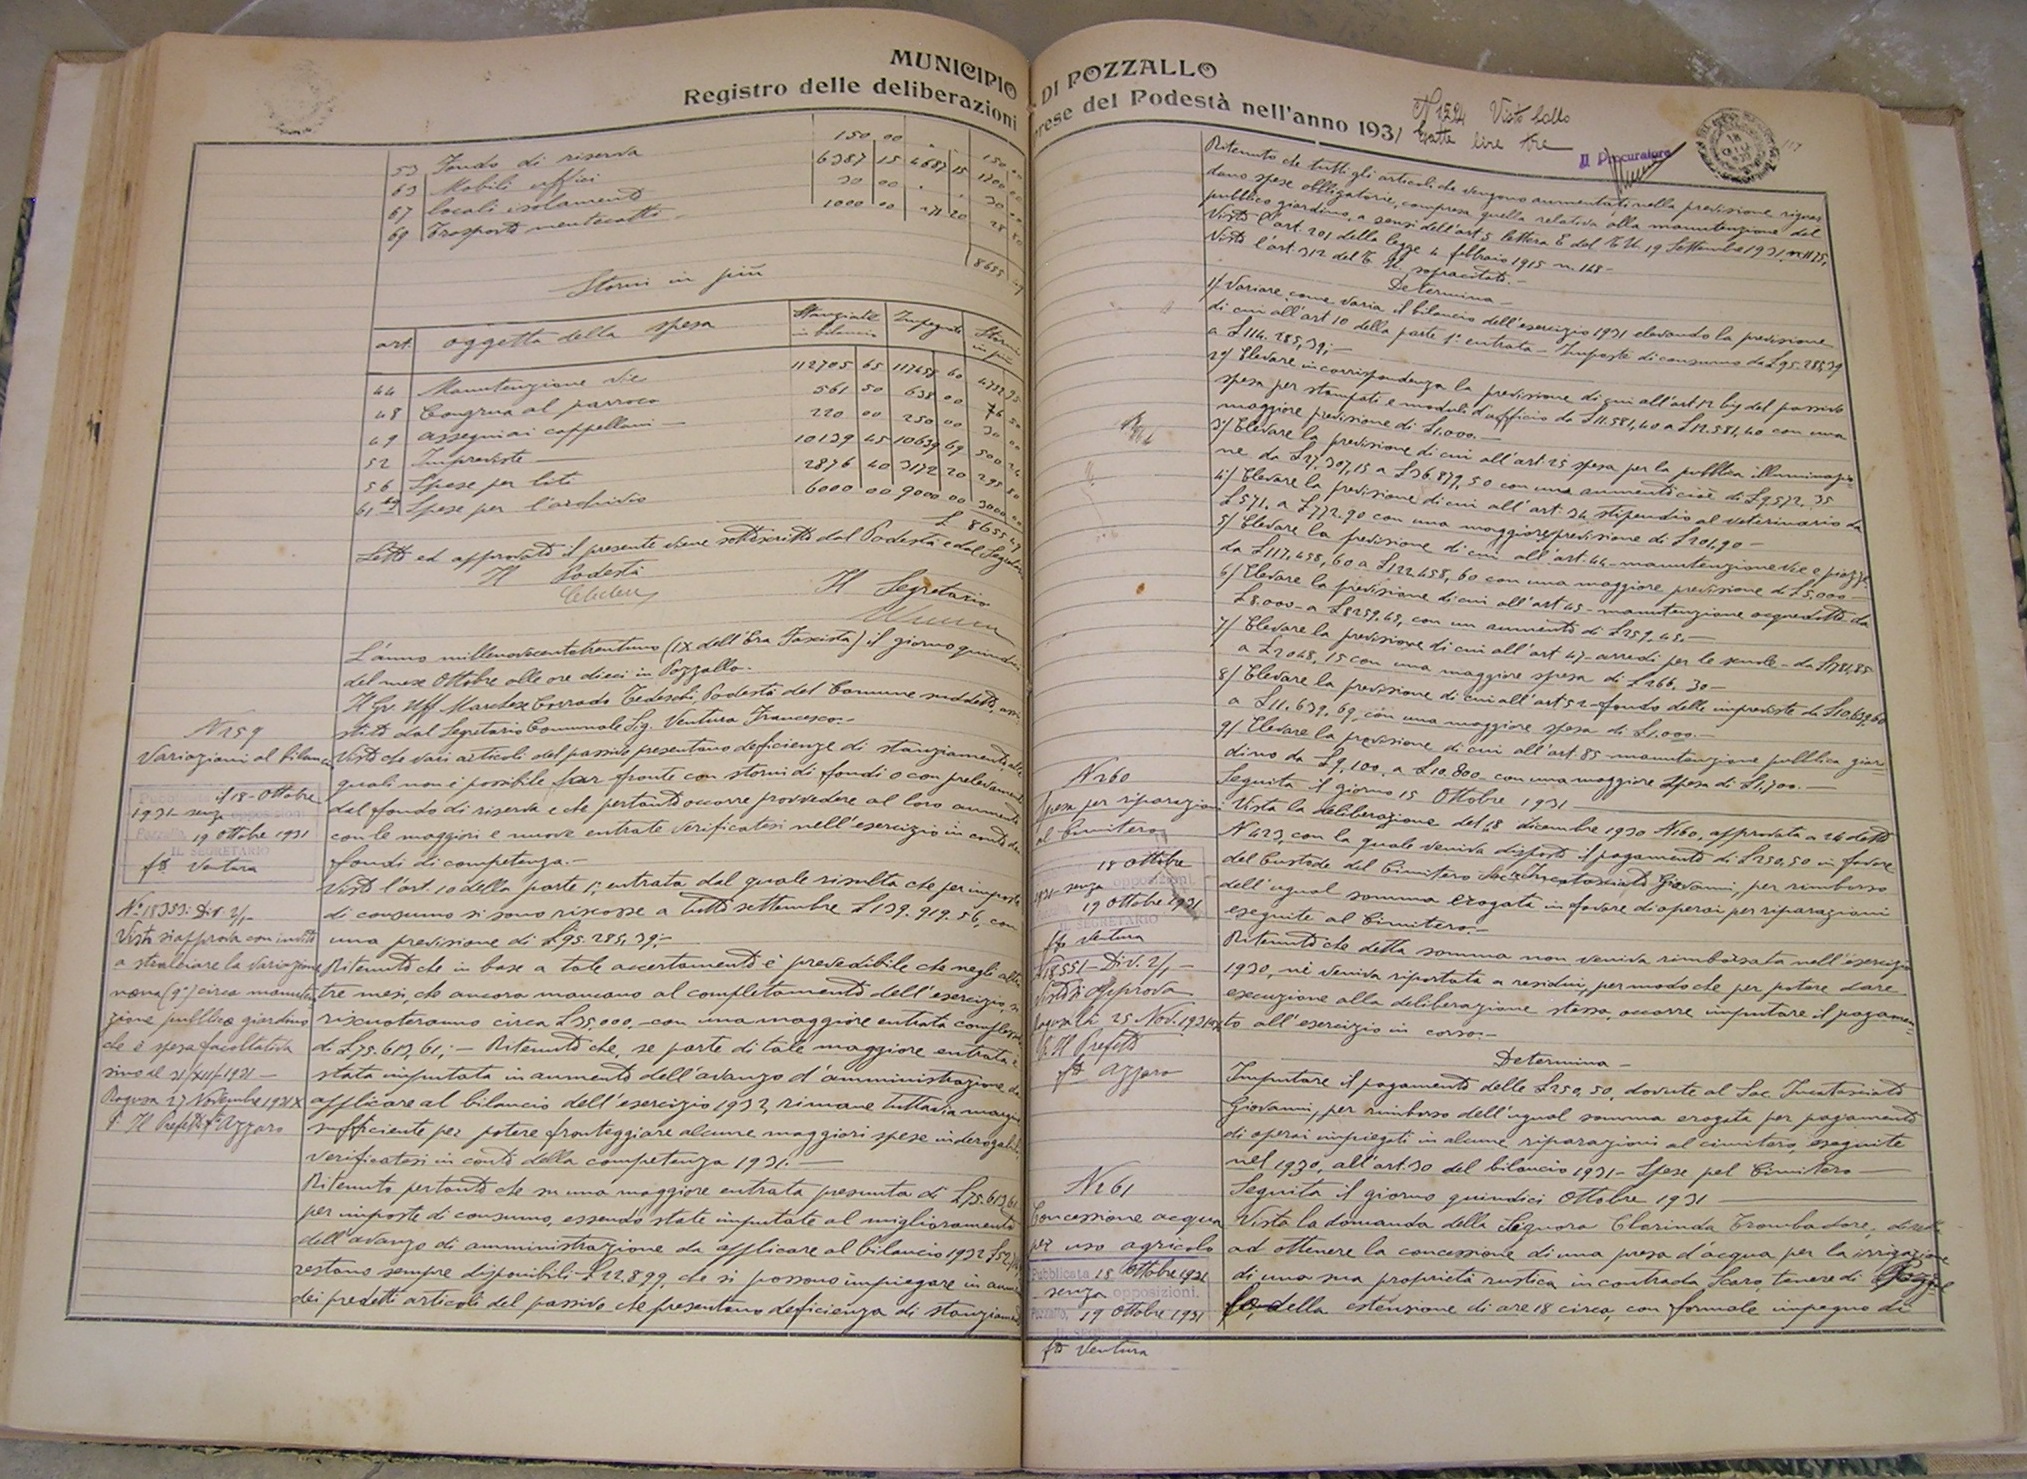 MUNICIPIO DI POZZALLO
Registro delle deliberazioni prese del Podestà nell'anno 1931
53 Fondo di riserva 150 00 150 00
63 Mobili uffici 6387 15 4687 15 1700 00
67 locali isolamento 30 00 30 00
69 Trasporto mentecatti 1000 00 971 20 28 80
8655
Storni in più
art. oggetto della spesa Stanziato in bilancio Impegnato Storni in più
44 Manutenzione vie 112705 65 117458 60 4752 95
48 Congrua al parroco 561 50 638 00 76 50
49 assegni ai cappellani 220 00 250 00 30 00
52 Impreviste 10139 45 10639 69 500 24
56 Spese per liti 2876 40 3172 20 295 80
61 bis Spese per l'archivio 6000 00 9000 00 3000 00
£ 8655 49
Letto ed approvato il presente viene sottoscritto dal Podestà e dal Segretario
Il Podestà Il Segretario
L'anno millenovecentotrentuno (IX dell'Era Fascista) il giorno quindici
del mese Ottobre alle ore dieci in Pozzallo.
Il Gr. Uff. Marchese Corrado Tedeschi, Podestà del Comune suddetto, assi-
stito dal Segretario Comunale Sig. Ventura Francesco.
N 259
Variazioni al bilancio
il 18 - Ottobre
1931 - senza opposizioni
Pozzallo, 19 Ottobre 1931
IL SEGRETARIO
fto Ventura
N° 18353. Div. 2/1
Vista si approva con invito
a stralciare la variazione
nona (9ª) circa manuten
zione pubblico giardino
che è spesa facoltativa
sino al 31/XII/1931 -
Ragusa 27 Novembre 1931 X
p. Il Prefetto fto Azzaro
Visto che vari articoli del passivo presentano deficienze di stanziamento, alle
quali non è possibile far fronte con storni di fondi o con prelevamenti
dal fondo di riserva e che pertanto occorre provvedere al loro aumento
con le maggiori e nuove entrate verificatesi nell'esercizio in conto dei
fondi di competenza.-
Visto l'art. 10 della parte 1ª entrata dal quale risulta che per imposte
di consumo si sono riscosse a tutto settembre £ 139.919.56, con
una previsione di £ 95.285,39;-
Ritenuto che in base a tale accertamento è prevedibile che negli altri
tre mesi, che ancora mancano al completamento dell'esercizio, si
riscuoteranno circa £ 35.000 - con una maggiore entrata complessiva
di £ 75.613,61;- Ritenuto che, se parte di tale maggiore entrata è
stata imputata in aumento dell'avanzo d'amministrazione da
applicare al bilancio dell'esercizio 1932, rimane tuttavia margine
sufficiente per potere fronteggiare alcune maggiori spese inderogabili
verificatesi in conto della competenza 1931.-
Ritenuto pertanto che su una maggiore entrata presunta di £ 75.613,61
per imposte di consumo, essendo state imputate al miglioramento
dell'avanzo di amministrazione da applicare al bilancio 1932
restano sempre disponibili £ 22.899 che si possono impiegare in aumento
dei predetti articoli del passivo che presentano deficienza di stanziamento
N 1524 Visto bollo
Esatte lire tre
Il Procuratore
Ritenuto che tutti gli articoli che vengono aumentati nella previsione riguar
dano spese obbligatorie, compresa quella relativa alla manutenzione del
pubblico giardino, a sensi dell'art. 5 lettera E del T.U. 19 Settembre 1931 n. 1175,
Visto l'art. 201 della legge 4 febbraio 1915 n. 148 -
Visto l'art. 312 del T.U. sopracitato.-
Determina -
1/ Variare come varia il bilancio dell'esercizio 1931 elevando la previsione
di cui all'art 10 della parte 1ª entrata - Imposte di consumo da £ 95.285,39
a £ 114.285,39;-
2/ Elevare in corrispondenza la previsione di cui all'art 12 bis del passivo
spesa per stampati e moduli d'ufficio da £ 11.581,40 a £ 12.581,40 con una
maggiore previsione di £ 1.000.-
3/ Elevare la previsione di cui all'art. 25 spesa per la pubblica illuminazio-
ne da £ 27.307,15 a £ 36.879,50 con un aumento cioè di £ 9.572.35
4/ Elevare la previsione di cui all'art. 34 stipendio al veterinario da
£ 571. a £ 772.90 con una maggiore previsione di £ 201.90 -
5/ Elevare la previsione di cui all'art. 44 - manutenzione vie e piazze
da £ 117.458,60 a £ 122.458,60 con una maggiore previsione di £ 5.000 -
6/ Elevare la previsione di cui all'art 45 - manutenzione acquedotto da
£ 8.000 - a £ 8259,45, con un aumento di £ 259,45.-
7/ Elevare la previsione di cui all'art 47 - arredi per le scuole - da £ 1781,85
a £ 2048,15 con una maggiore spesa di £ 266.30 -
8/ Elevare la previsione di cui all'art 52 - fondo delle impreviste da £ 10.639,69
a £ 11.639,69, con una maggiore spesa di £ 1.000.-
9/ Elevare la previsione di cui all'art. 85 - manutenzione pubblico giar-
dino da £ 9,100, a £ 10.800 - con una maggiore spesa di £ 1.700.-
Seguita il giorno 15 Ottobre 1931
N 260
Spesa per riparazioni
al Cimitero
18 Ottobre
1931 - senza opposizioni.
19 Ottobre 1931
IL SEGRETARIO
fto Ventura
N 18551 - Div. 2/1 -
Visto si approva
Ragusa lì 25 Nov. 1931
p. Il Prefetto
fto Azzaro
Vista la deliberazione del 18 dicembre 1930 N 160, approvata a 24 detto
N 423, con la quale veniva disposto il pagamento di £ 250,50 in favore
del Custode del Cimitero Sac. Incatasciato Giovanni, per rimborso
dell'ugual somma erogata in favore di operai per riparazioni
eseguite al Cimitero.-
Ritenuto che detta somma non veniva rimborsata nell'esercizio
1930, nè veniva riportata a residui, per modo che per potere dare
esecuzione alla deliberazione stessa, occorre imputare il pagamen-
to all'esercizio in corso.-
Determina -
Imputare il pagamento delle £ 250,50, dovute al Sac. Incatasciato
Giovanni, per rimborso dell'ugual somma erogata per pagamento
di operai impiegati in alcune riparazioni al cimitero, eseguite
nel 1930, all'art. 30 del bilancio 1931 - Spese pel Cimitero -
Seguita il giorno quindici Ottobre 1931
N 261
Concessione acqua
per uso agricolo
Pubblicata 18 Ottobre 1931
senza opposizioni.
Pozzallo, 19 Ottobre 1931
fto Ventura
Vista la domanda della Signora Clarinda Trombadore, diretta
ad ottenere la concessione di una presa d'acqua per la irrigazione
di una sua proprietà rustica in contrada Scaro, tenere di Pozzal
lo, della estensione di are 18 circa, con formale impegno di